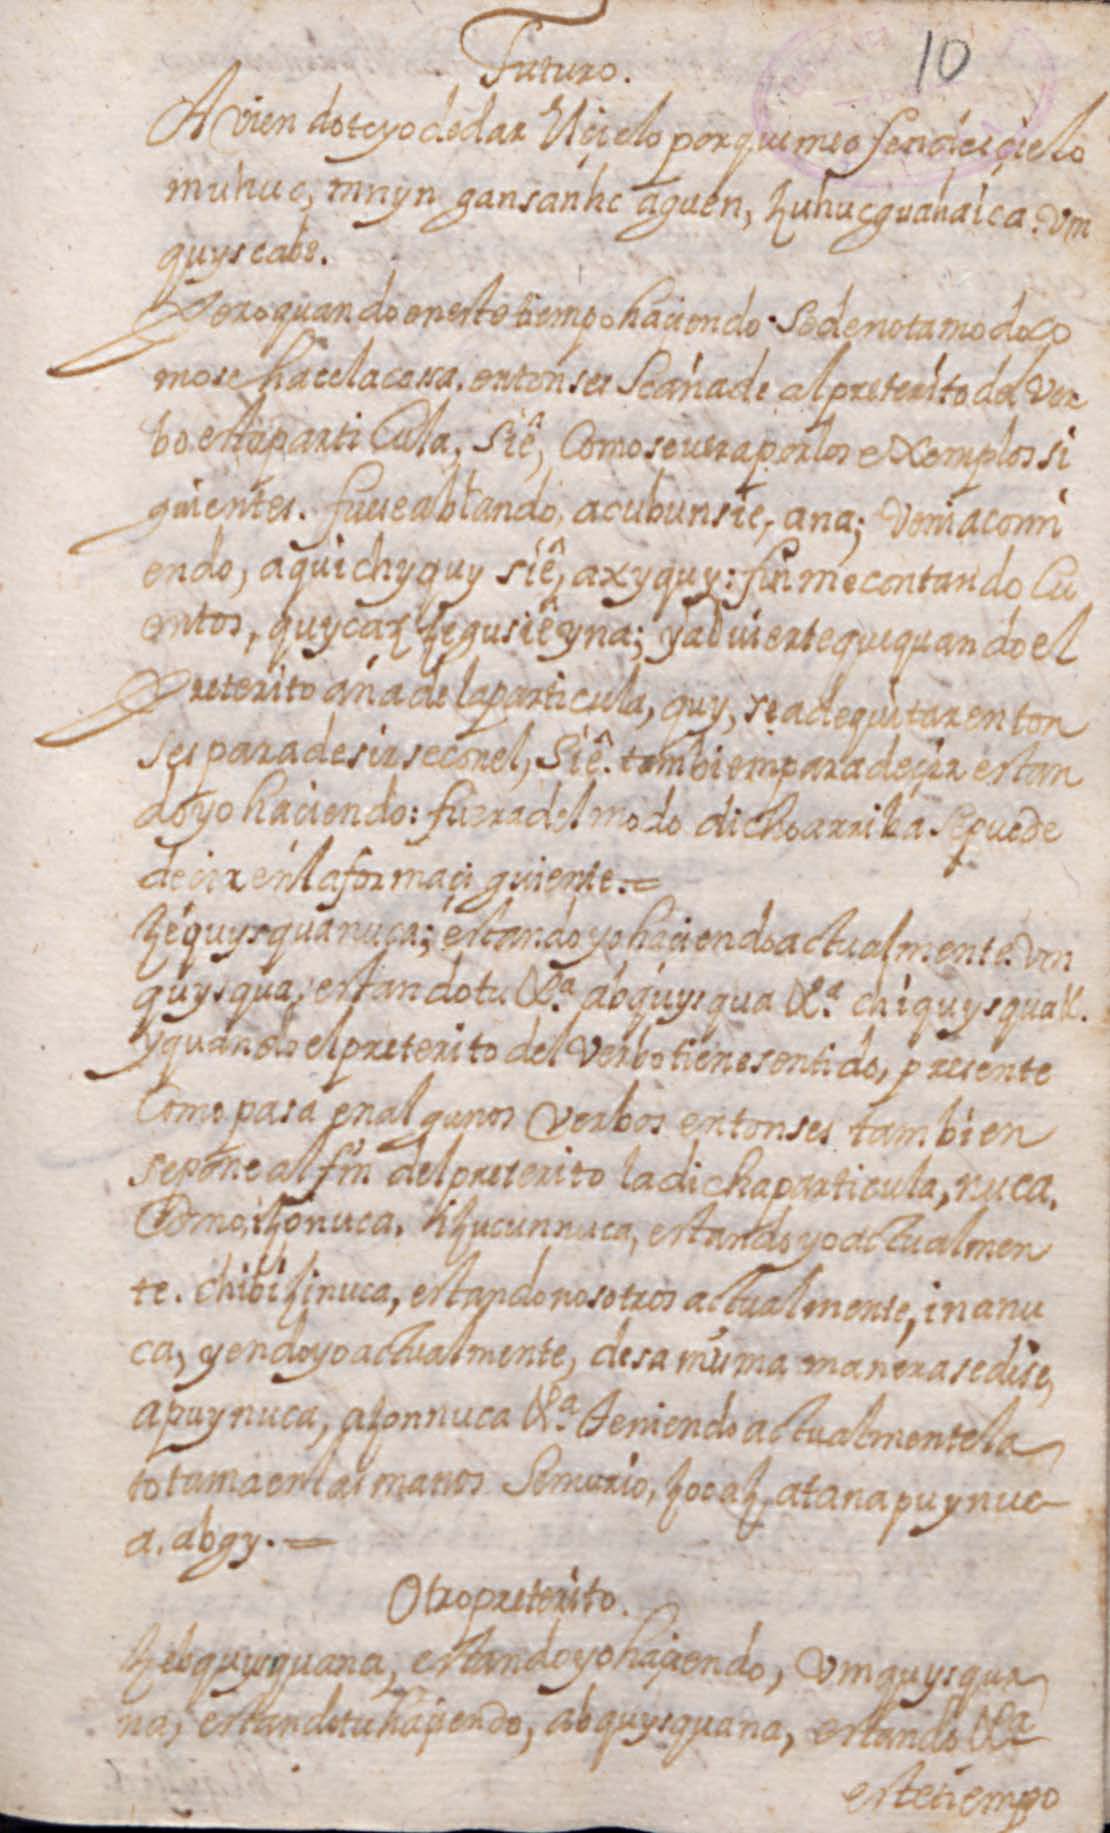 Futuro.
10
Aviendoteyo dedar Ucielo porquemeo sendes cielo
muhuc, mnyn gansanhc aguen, huhucguahaica. Vm
quyscabe.
Pero quando en este tiempo haciendo. Se denota modo co
mo se hace la cossa. entonses Se añade al preterito del Ver
bo esta parti Cula, Siê, Como se vera por los eXemplos si
guientes. fuese ablando, acubunsie, ana; Venia comi
endo, aquichyquy siê, axyquy: fuime contando Cu
entos, quycaz hegusiêyna; y advierte que quando el
Preterito añade la particula, quy, se a de quitar enton
ses para desirse con el, Siê. tambiem para deçir estan
do yo haciendo: fuera del modo dicho arriba Se puede
decir en la forma çi guiente.=
hequysquanuca; estando yo haciendo actualmente. Vm
quysqua, estando tu &.a abquysqua &.a chiquysqua &.
y quando el preterito del Verbo tiene sentido, presente
Como pasa en algunos Verbos entonses tambien
se pone al fin del preterito la dicha particula, nuca.
Como, ihonuca. hhucunnuca, estando yo actualmen
te. chibihinuca, estando nosotros actualmente, inanu
ca, yendo yo actualmente, desa misma manera se dise,
apuynuca, ahonnuca &.a teniendo actualmente la
totuma en las manos Se murio, hocah atanapuynuc
a. abgy.=
Otro preterito.
hebquysquana, estando yo haciendo, Vmquysqua
na, estando tu haciendo, abquysquana, estando &a
este tiempo